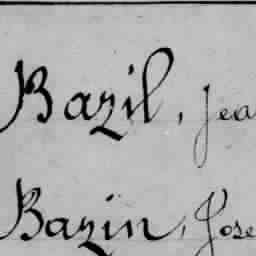 Bazil, Jea
Bazin, Jose